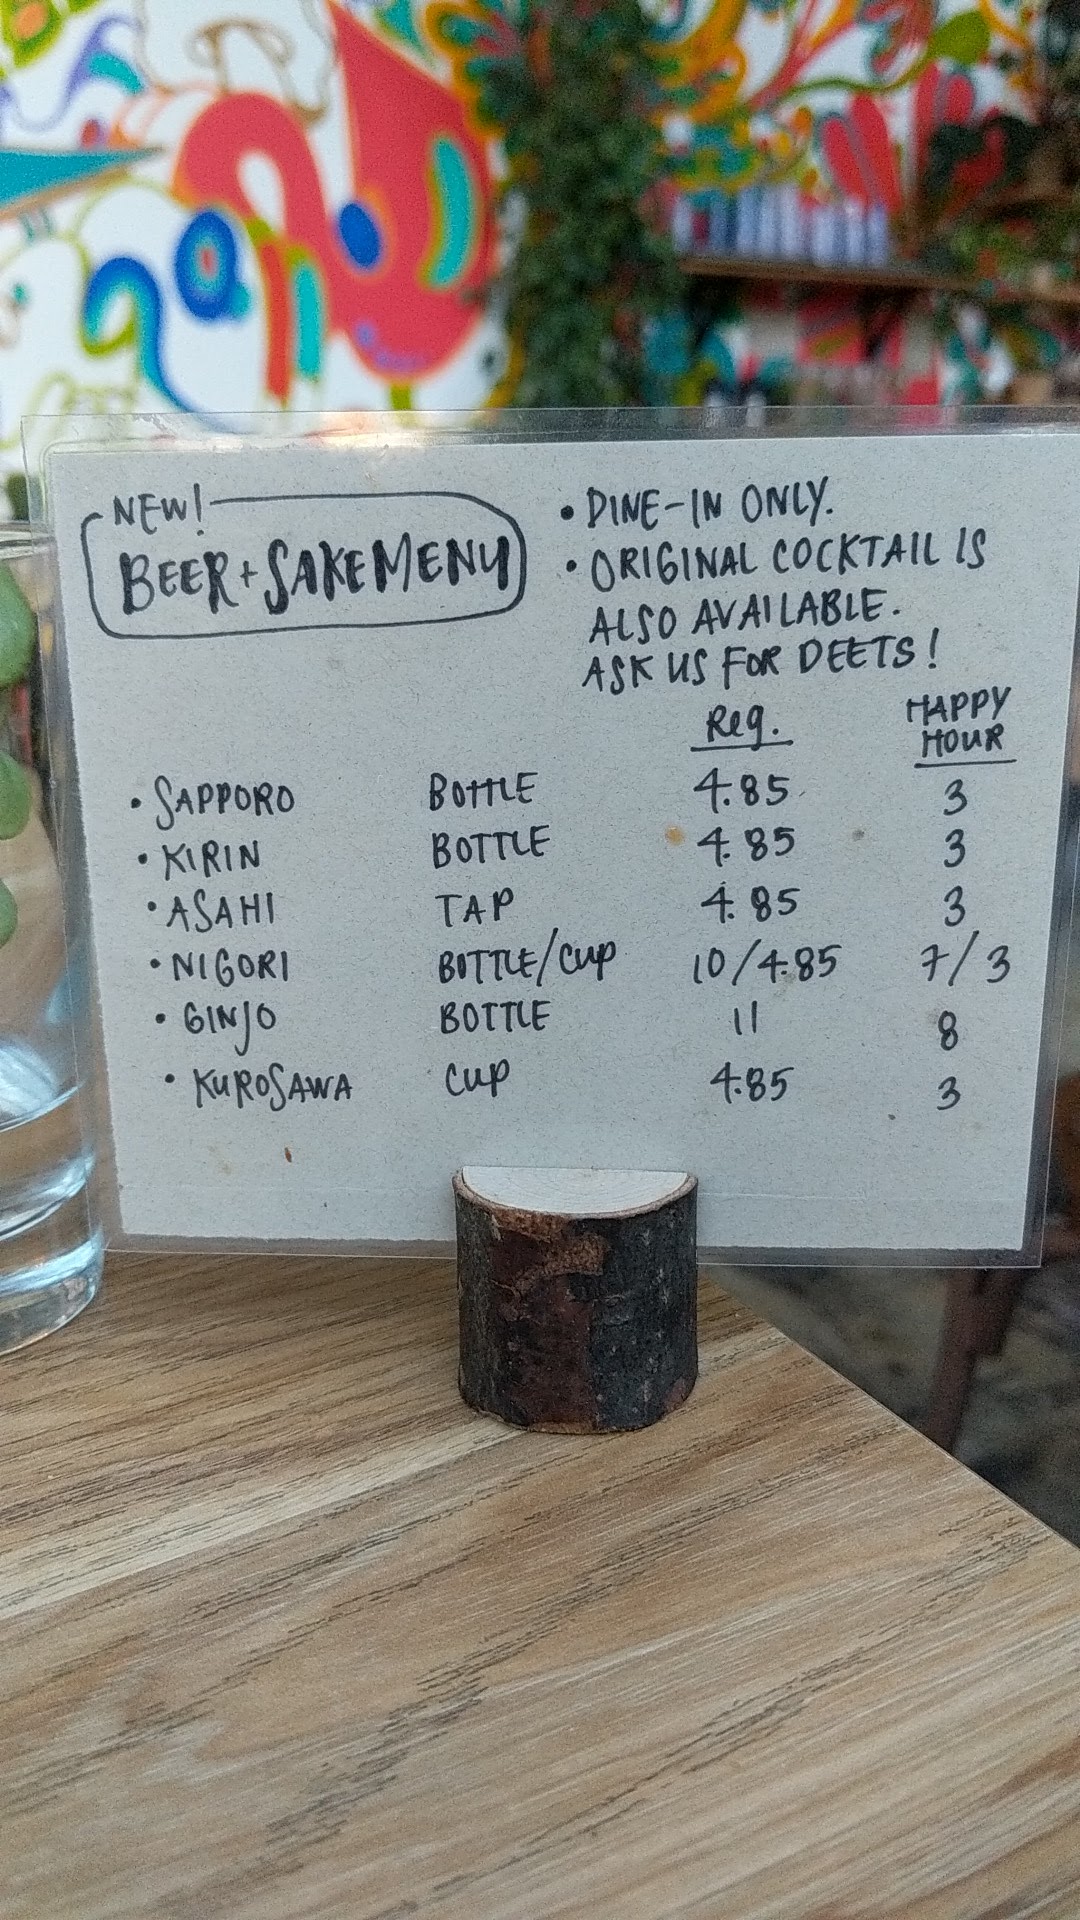 NEW!
BEER + SAKE MENU
• DINE-IN ONLY.
• ORIGINAL COCKTAIL IS
ALSO AVAILABLE.
ASK US FOR DEETS!
Reg. HAPPY
HOUR
• SAPPORO BOTTLE 4.85 3
• KIRIN BOTTLE 4.85 3
• ASAHI TAP 4.85 3
• NIGORI BOTTLE/CUP 10/4.85 7/3
• GINJO BOTTLE 11 8
• KUROSAWA CUP 4.85 3